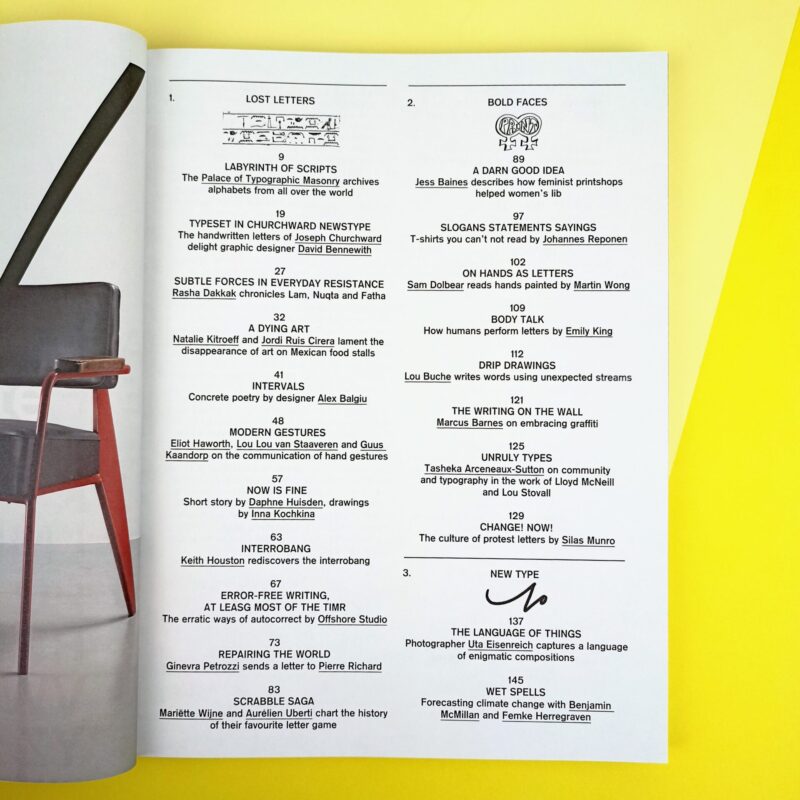 1.
LOST LETTERS
9
LABYRINTH OF SCRIPTS
The Palace of Typographic Masonry archives
alphabets from all over the world
19
TYPESET IN CHURCHWARD NEWSTYPE
The handwritten letters of Joseph Churchward
delight graphic designer David Bennewith
27
SUBTLE FORCES IN EVERYDAY RESISTANCE
Rasha Dakkak chronicles Lam, Nuqta and Fatha
32
A DYING ART
Natalie Kitroeff and Jordi Ruis Cirera lament the
disappearance of art on Mexican food stalls
41
INTERVALS
Concrete poetry by designer Alex Balgiu
48
MODERN GESTURES
Eliot Haworth, Lou Lou van Staaveren and Guus
Kaandorp on the communication of hand gestures
57
NOW IS FINE
Short story by Daphne Huisden, drawings
by Inna Kochkina
63
INTERROBANG
Keith Houston rediscovers the interrobang
67
ERROR-FREE WRITING,
AT LEASG MOST OF THE TIMR
The erratic ways of autocorrect by Offshore Studio
73
REPAIRING THE WORLD
Ginevra Petrozzi sends a letter to Pierre Richard
83
SCRABBLE SAGA
Mariëtte Wijne and Aurélien Uberti chart the history
of their favourite letter game
2.
BOLD FACES
89
A DARN GOOD IDEA
Jess Baines describes how feminist printshops
helped women's lib
97
SLOGANS STATEMENTS SAYINGS
T-shirts you can't not read by Johannes Reponen
102
ON HANDS AS LETTERS
Sam Dolbear reads hands painted by Martin Wong
109
BODY TALK
How humans perform letters by Emily King
112
DRIP DRAWINGS
Lou Buche writes words using unexpected streams
121
THE WRITING ON THE WALL
Marcus Barnes on embracing graffiti
125
UNRULY TYPES
Tasheka Arceneaux-Sutton on community
and typography in the work of Lloyd McNeill
and Lou Stovall
129
CHANGE! NOW!
The culture of protest letters by Silas Munro
3.
NEW TYPE
137
THE LANGUAGE OF THINGS
Photographer Uta Eisenreich captures a language
of enigmatic compositions
145
WET SPELLS
Forecasting climate change with Benjamin
McMillan and Femke Herregraven